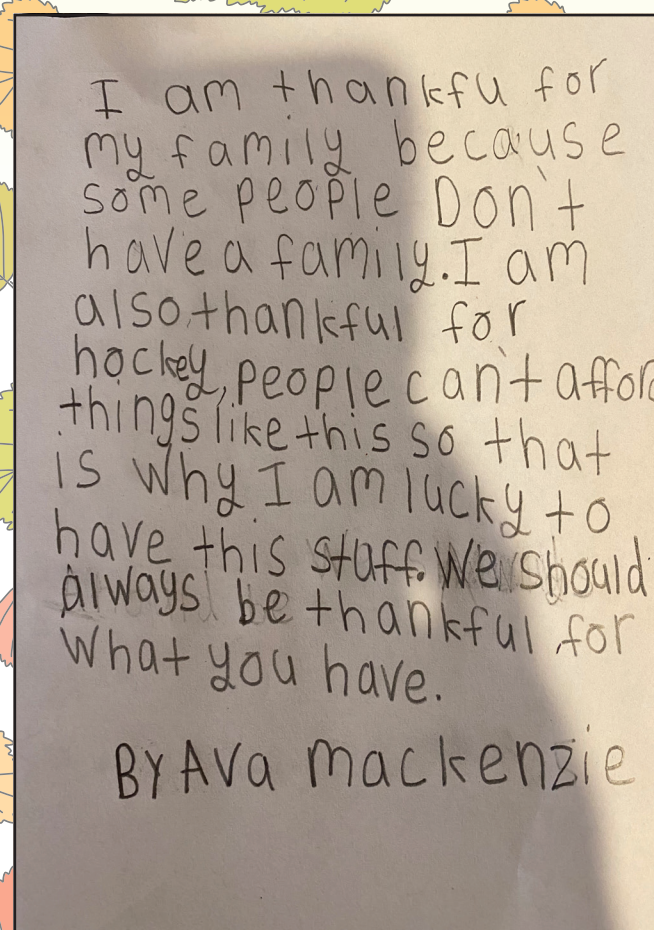 I am thankfu for
my family because
some people Don't
have a family. I am
also thankful for
hockey, people can't affor
things like this so that
is why I am lucky to
have this staff. We should
always be thankful for
what you have.
BY Ava mackenzie